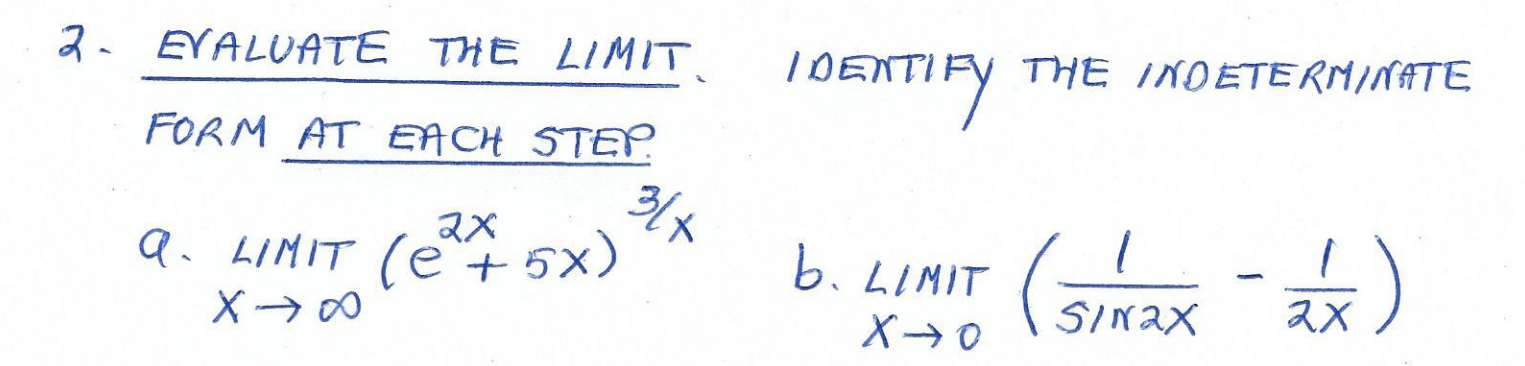 2. EVALUATE THE LIMIT. IDENTIFY THE INDETERMINATE
FORM AT EACH STEP.
a. LIMIT (e^2x + 5x)^3/x b. LIMIT (1/SIN2X - 1/2X)
X→∞ X→0